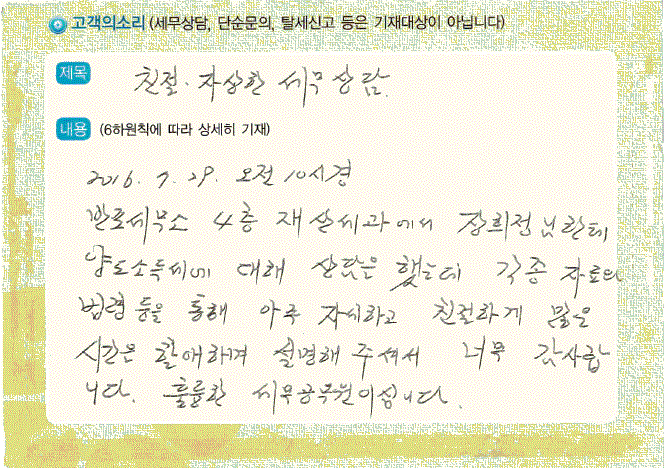 고객의소리 (세무상담, 단순문의, 탈세신고 등은 기재대상이 아닙니다)
제목
친절·자상한 세무상담.
내용 (6하원칙에 따라 상세히 기재)
2016. 7. 29. 오전 10시경
반포세무소 4층 재산세과에서 장희정님한테
양도소득세에 대해 상담을 했는데 각종 자료와
법령 등을 통해 아주 자세하고 친절하게 많은
시간은 할애하며 설명해 주셔서 너무 감사합
니다. 훌륭한 세무공무원이십니다.